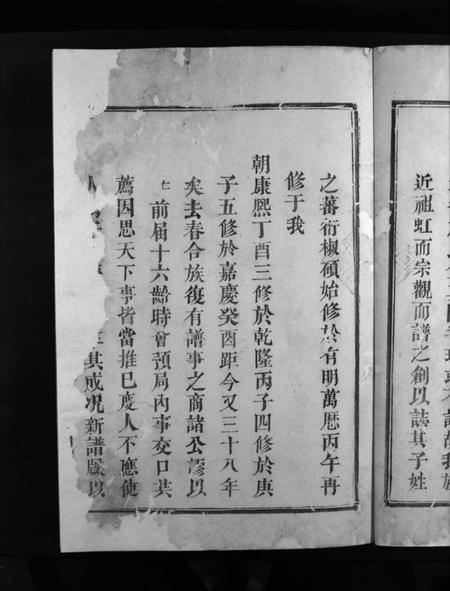 近祖虹而宗觀而譜之創以誌其子姓
之蕃衍椒碩始修於有明萬曆丙午再
修于我
朝康熙丁酉三修於乾隆丙子四修於庚
子五修於嘉慶癸酉距今又三十八年
矣去春合族復有譜事之商諸公謬以
前届十六齡時會預局內事交口共
薦因思天下事皆當推已度人不應使
其戒况新譜牒以